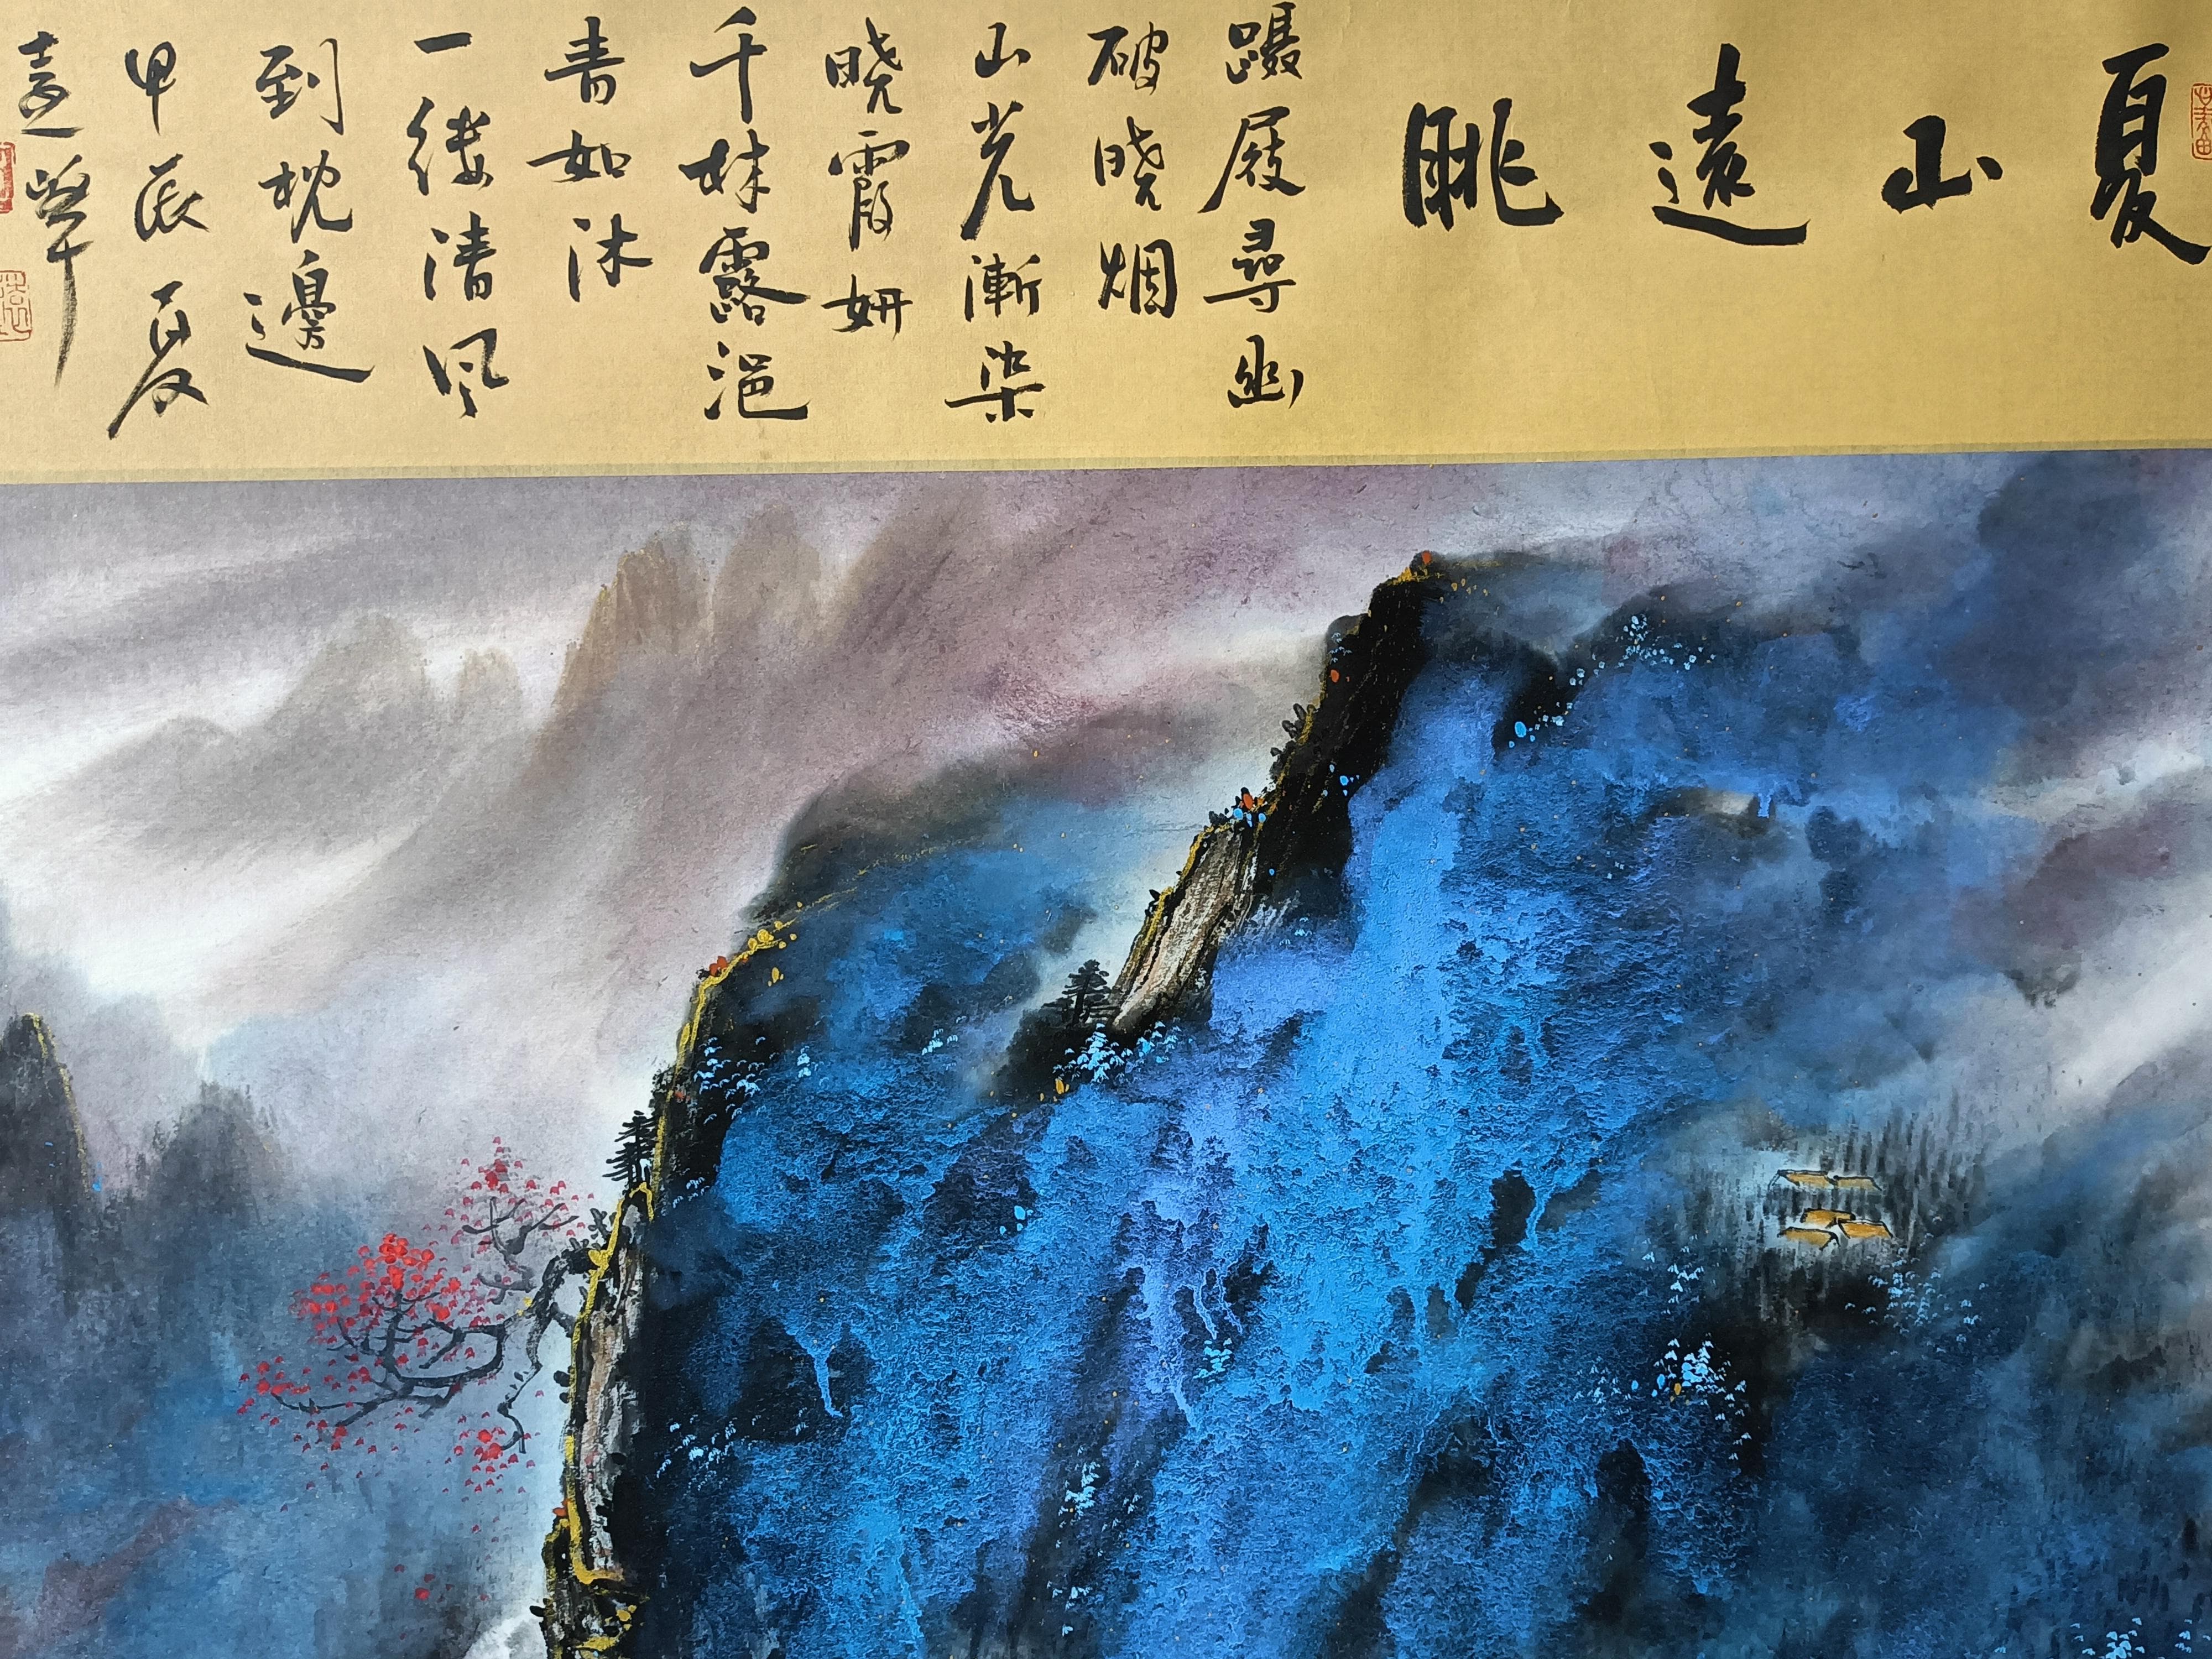 夏山遠眺
蹑屐尋幽
破晓烟
山光漸染
晓霞妍
千株露浥
青如沐
一缕清风
到枕邊
甲辰夏